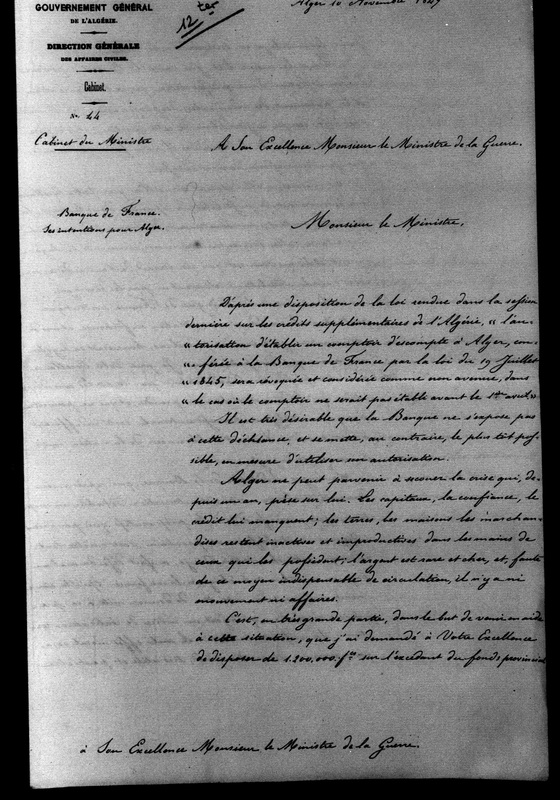 GOUVERNEMENT GÉNÉRAL
DE L'ALGÉRIE.
DIRECTION GÉNÉRALE
DES AFFAIRES CIVILES.
Cabinet.
N° 44
Cabinet du Ministre
12 ter
Alger 10 Novembre 1847
A Son Excellence Monsieur le Ministre de la Guerre.
Banque de France.
Ses intentions pour Alger.
Monsieur le Ministre,
D'après une disposition de la loi rendue dans la session
dernière sur les crédits supplémentaires de l'Algérie, « l'au-
« torisation d'établir un comptoir d'escompte à Alger, con-
« férée à la Banque de France par la loi du 19 Juillet
« 1845, sera révoquée et considérée comme non avenue, dans
« le cas où le comptoir ne serait pas établi avant le 1er avril »
Il est très désirable que la Banque ne s'expose pas
à cette déchéance, et se mette, au contraire, le plus tôt pos-
sible, en mesure d'utiliser son autorisation.
Alger ne peut parvenir à secouer la crise qui, de-
puis un an, pèse sur lui. Les capitaux, la confiance, le
crédit lui manquent; les terres, les maisons les marchan-
dises restent inactives et improductives dans les mains de
ceux qui les possèdent; l'argent est rare et cher, et, faute
de ce moyen indispensable de circulation, il n'y a ni
mouvement ni affaires.
C'est, en très grande partie, dans le but de venir en aide
à cette situation, que j'ai demandé à Votre Excellence
de disposer de 1.200.000 fcs sur l'excédant du fonds provincial
à Son Excellence Monsieur le Ministre de la Guerre.